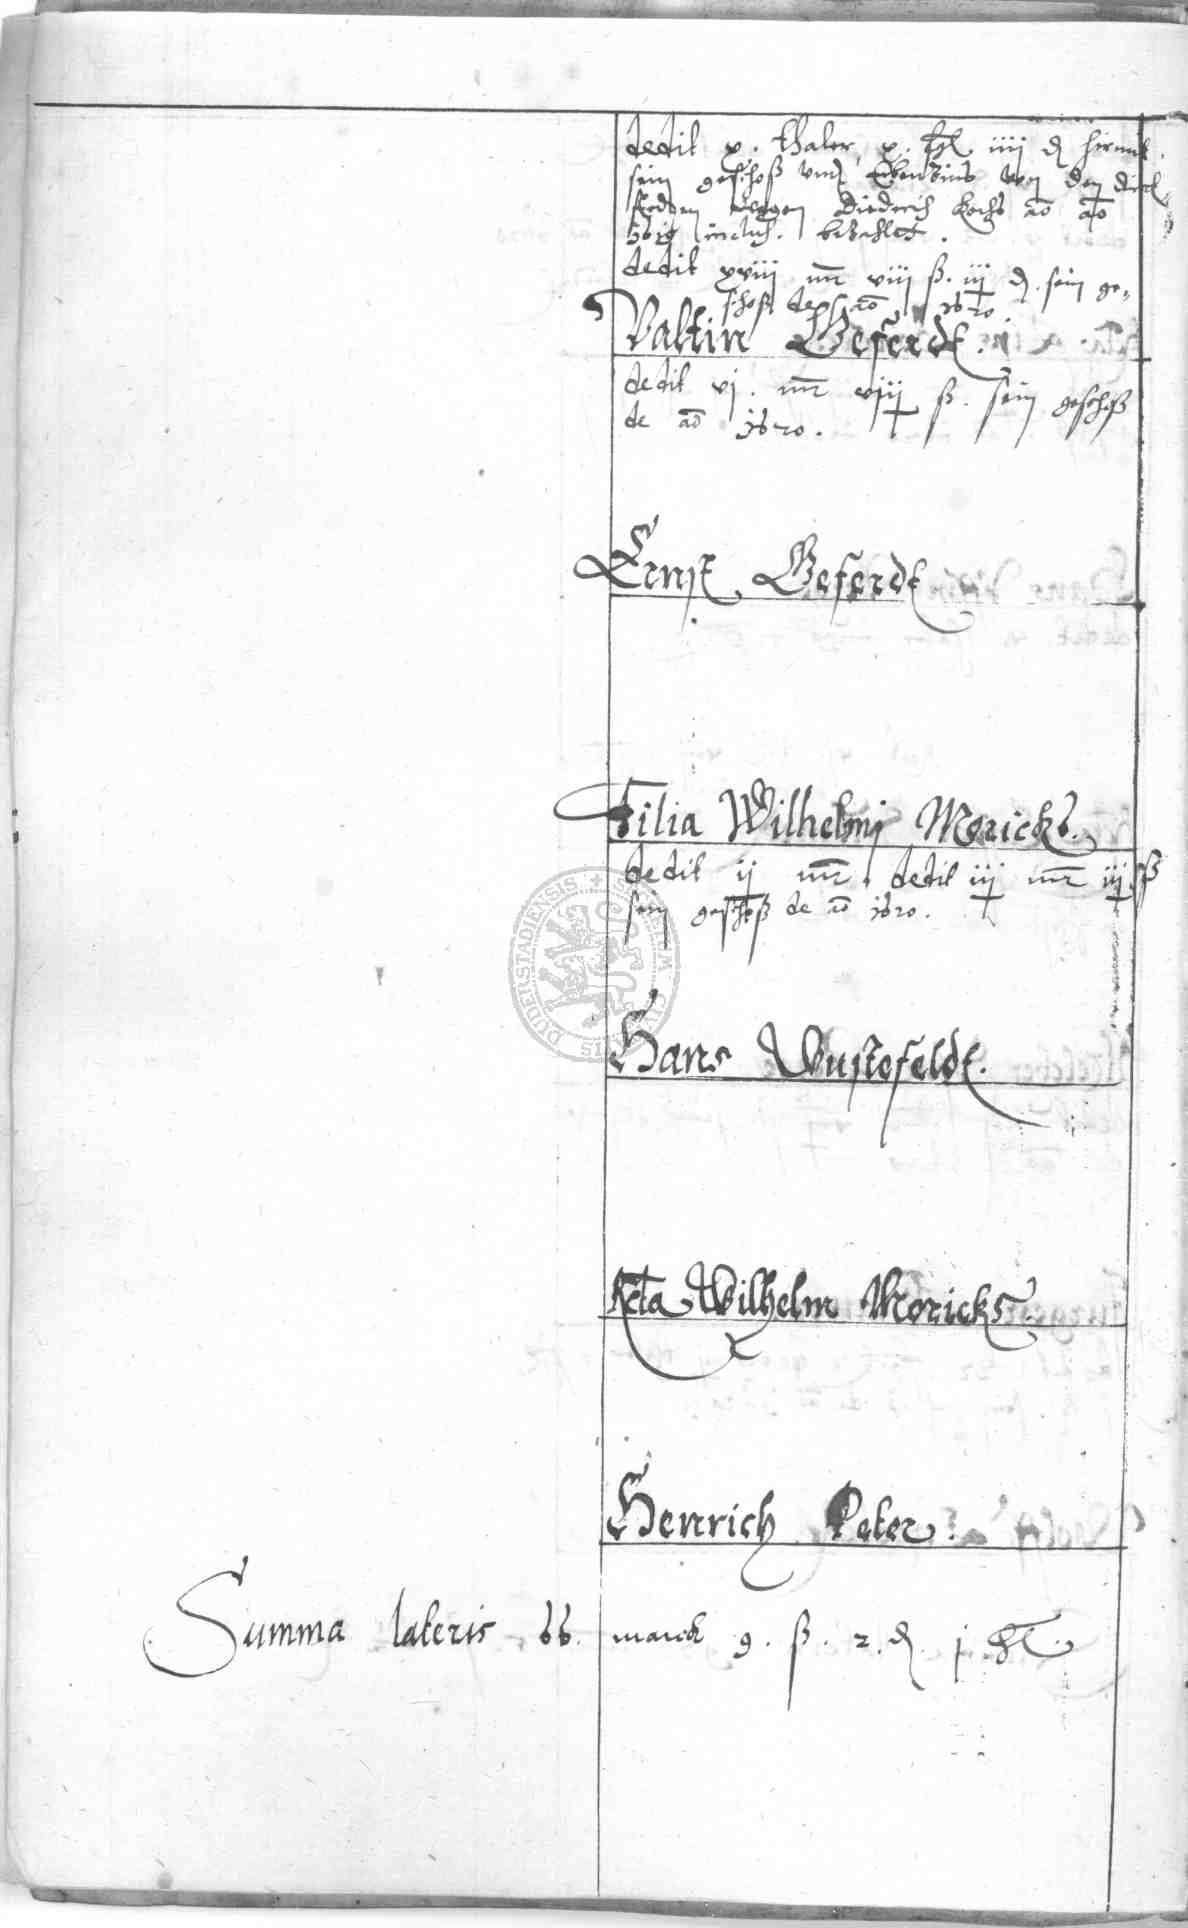 dedit x. thaler, x. ßl. iiii ₰ hirmit
sein geschoß vnd Erbenzins von den
wegen Diederich Kochs aō aō
1619 inclus. bezahlet.
dedit xviii mr viii ß. iij ₰. sein ge-
schoß de aō 1620.
Valtin Geferdt.
dedit vj. mr viij ß. sein geschoß
de aō 1620.
Ernst Geferdt
Filia Wilhelmj Moricks.
dedit ij mr. dedit iij mr iij ß
sein geschoß de aō 1620.
Hans Wustefeldt.
Rcta Wilhelm Moricks.
Henrich Peter.
Summa lateris 66. marck 9. ß. 2. ₰. j.
SIGILLUM CIVITATIS DUDERSTADIENSIS